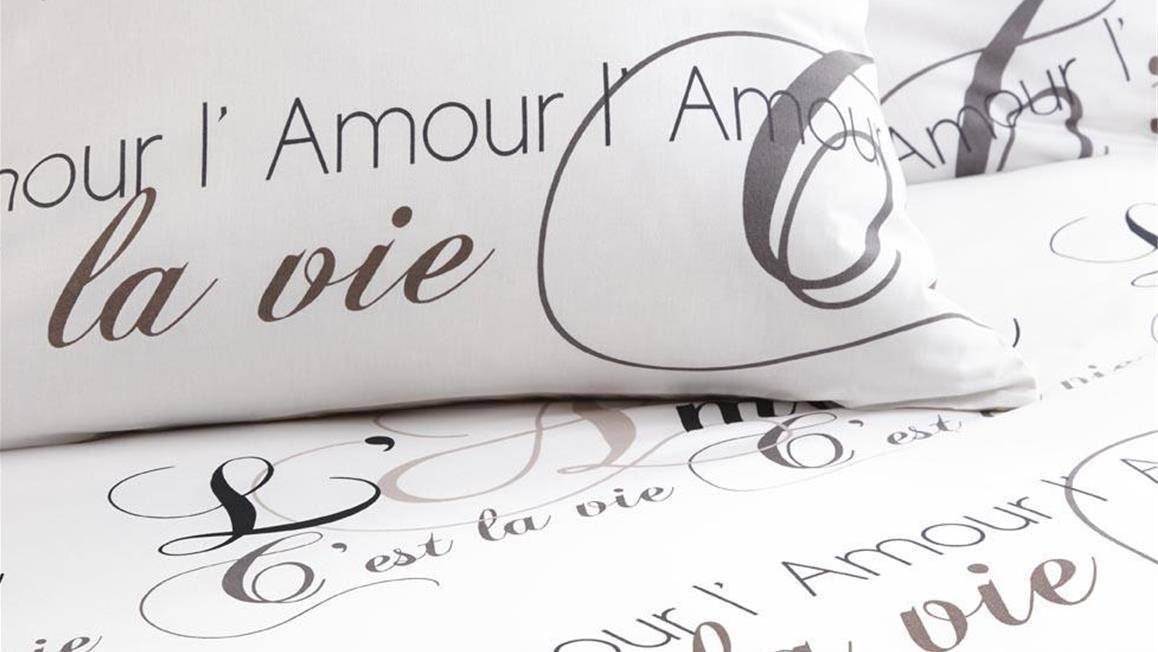 our l' Amour l' Amour
la vie C
Amour l'
L'Am
C'est la vie C'est
vie
our l' Amour l' A
la vie
vie